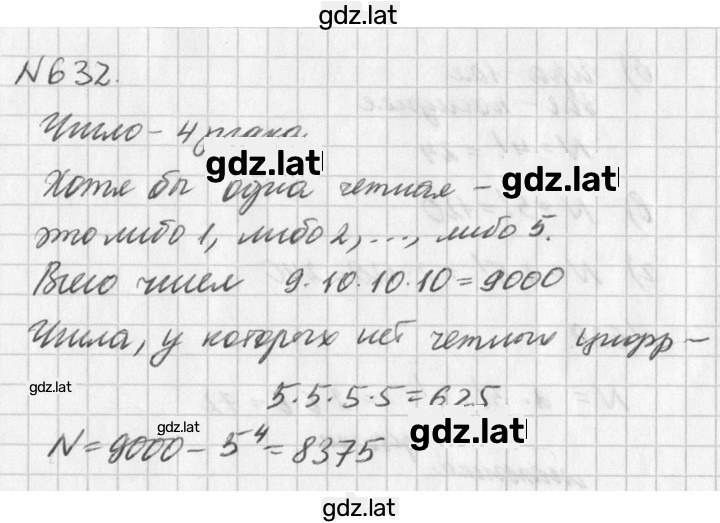 gdz.lat
№632.
Число - 4 знака
gdz.lat
Хотя бы одна четная -
gdz.lat
это либо 1, либо 2, ..., либо 5.
Всего чисел 9·10·10·10=9000
Числа, у которых нет четных цифр -
gdz.lat
5·5·5·5=625
gdz.lat
gdz.lat
N=9000-5⁴=8375
gdz.lat